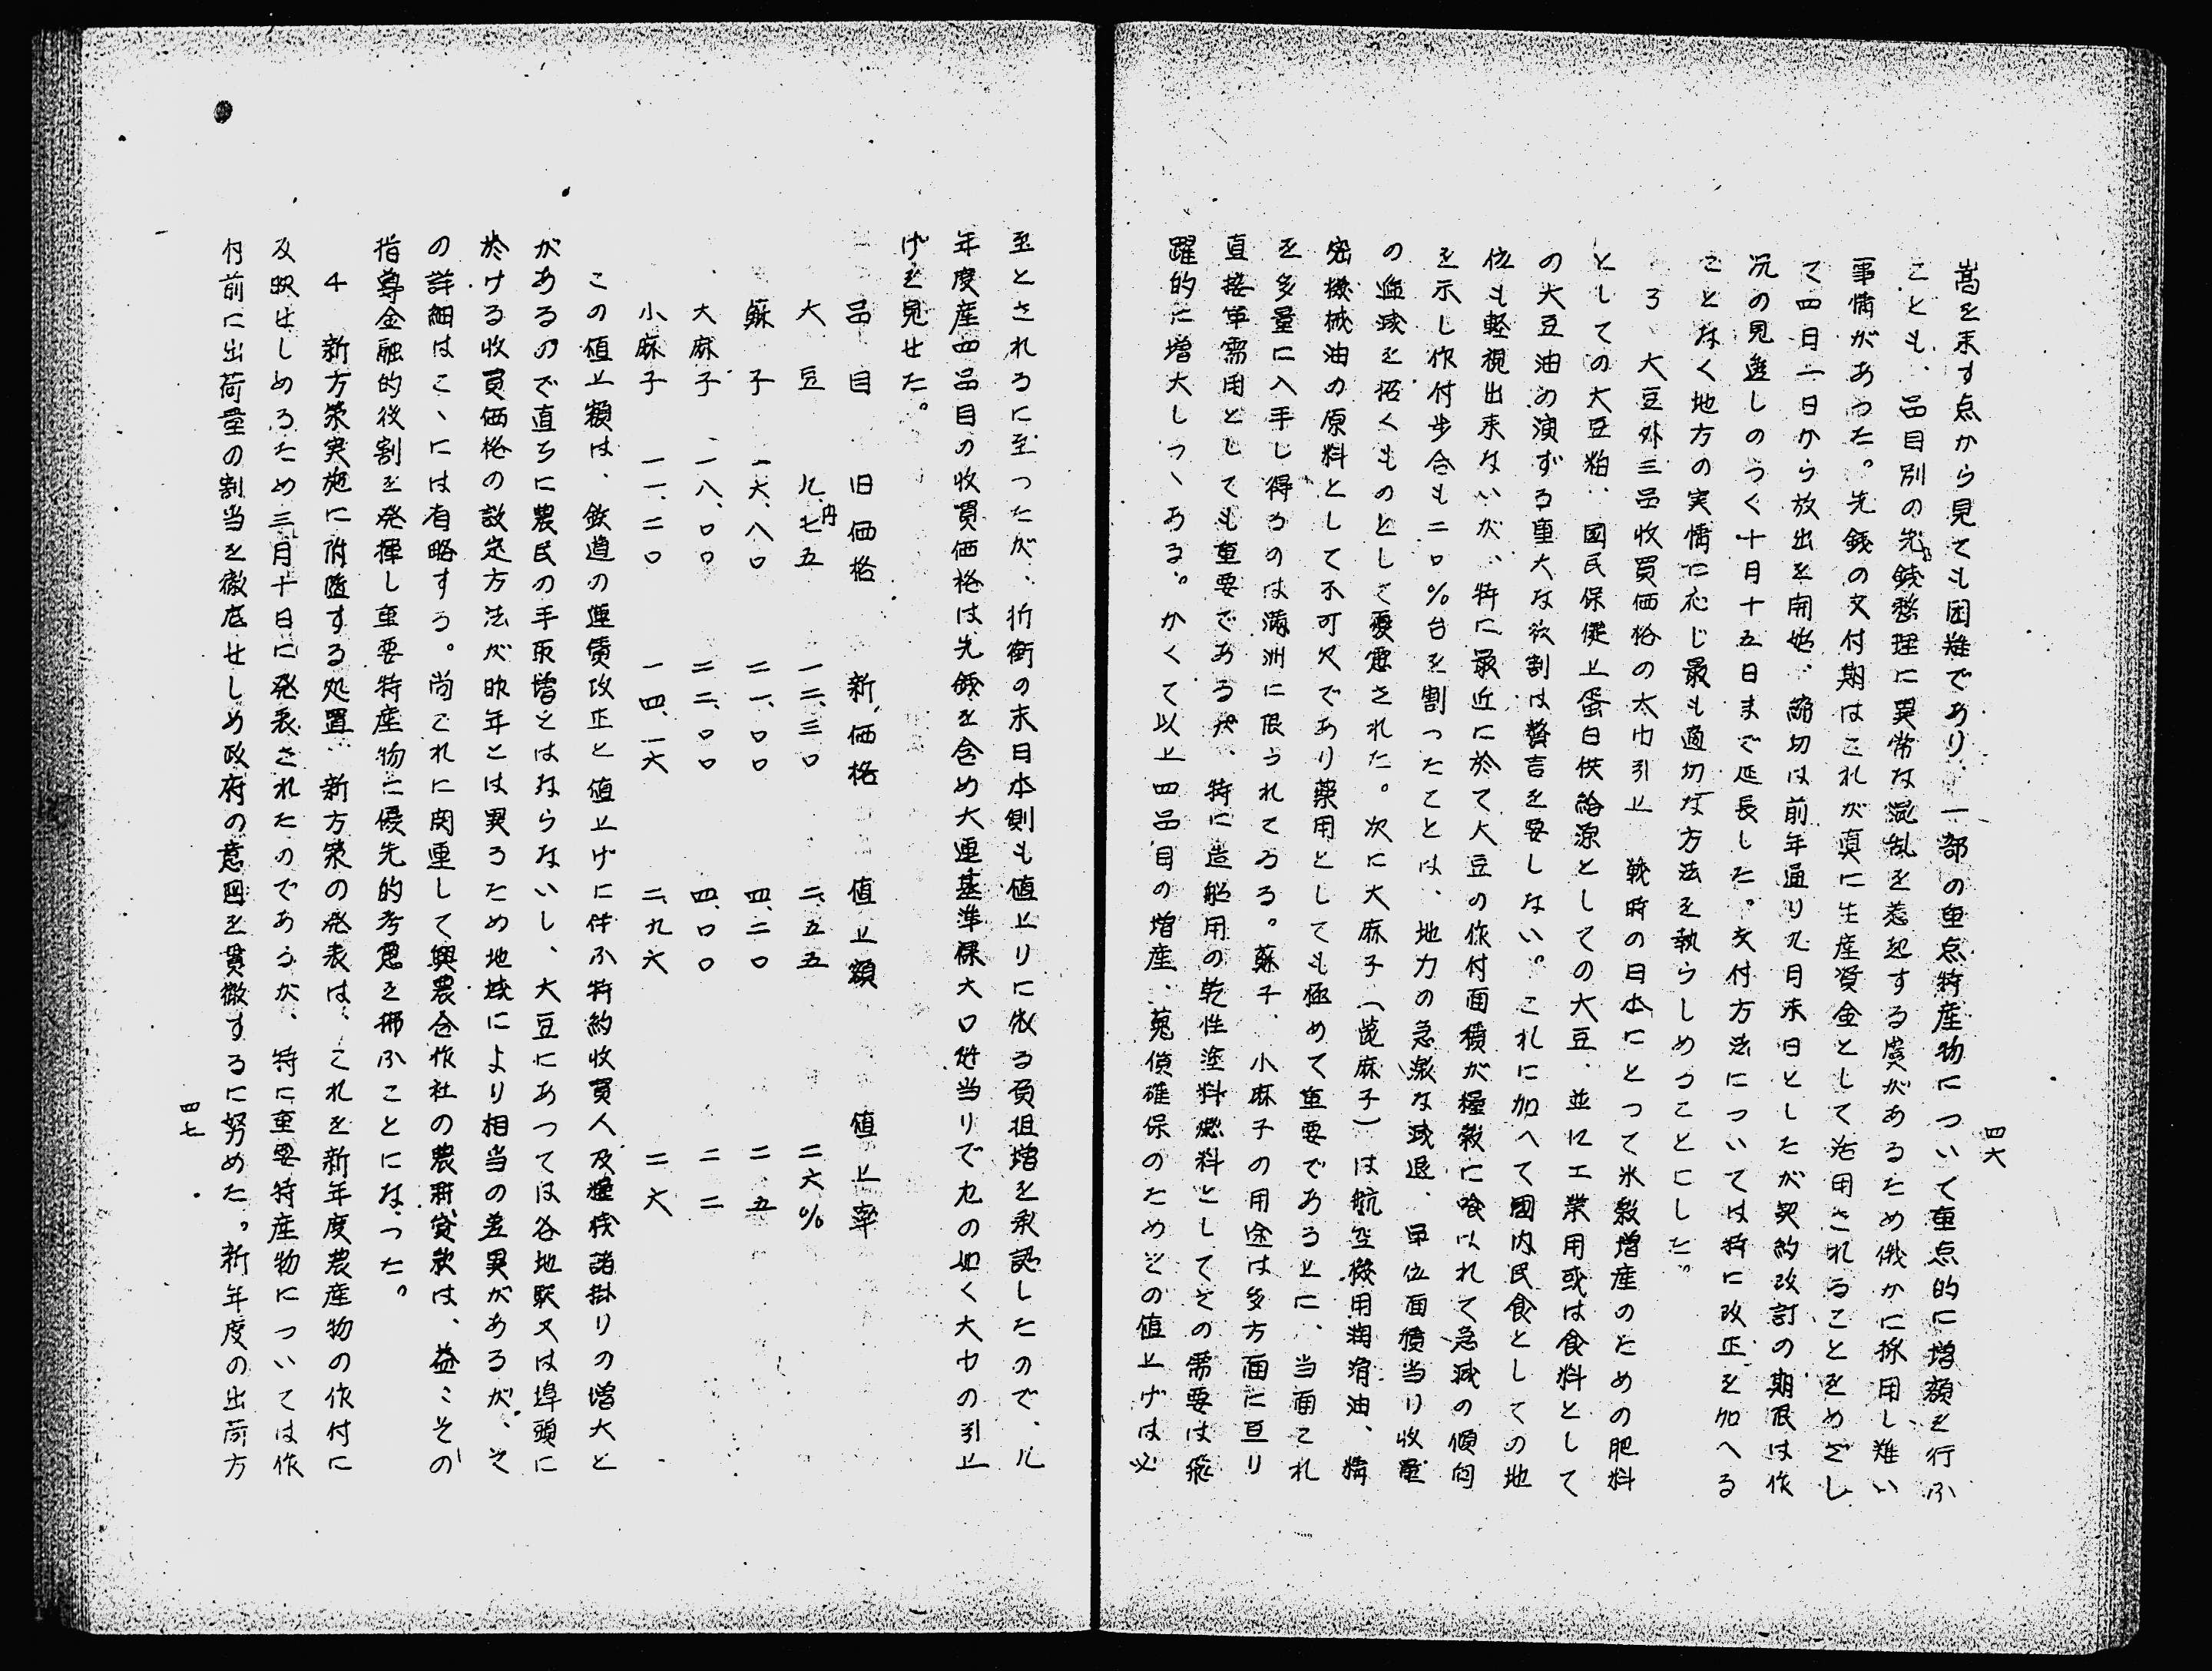 四六
嵩を来す点から見ても困難であり、一部の重点特産物について重点的に増額を行ふ
ことも、品目別の先銭整理に異常な混乱を惹起する虞があるため俄かに採用し難い
事情があつた。先銭の交付期はこれが真に生産資金として活用されることをめざし
て四日一日から放出を開始、締切は前年通り九月末日としたが契約改訂の期限は作
況の見透しのつく十月十五日まで延長した。交付方法については特に改正を加へる
ことなく地方の実情に応じ最も適切な方法を執らしめることにした。
3、大豆外三品収買価格の大巾引上 戦時の日本にとつて米穀増産のための肥料
としての大豆粕、國民保健上蛋白供給源としての大豆、並に工業用或は食料として
の大豆油の演ずる重大な役割は贅言を要しない。これに加へて國内民食としての地
位も軽視出来ないが、特に最近に於て大豆の作付面積が糧穀に喰はれて急減の傾向
を示し作付歩合も二〇%台を割つたことは、地力の急激な減退、単位面積当り收量
の逓減を招くものとして憂慮された。次に大麻子（萞麻子）は航空機用潤滑油、精
密機械油の原料として不可欠であり薬用としても極めて重要である上に、当面これ
を多量に入手し得るのは満洲に限られてゐる。蘇子、小麻子の用途は多方面に亘り
直接軍需用としても重要であるが、特に造船用の乾性塗料燃料としてその需要は飛
躍的に増大しつゝある。かくて以上四品目の増産、蒐貨確保のためその値上げは必
至とされるに至つたが、折衝の末日本側も値上りに依る負担増を承認したので、九
年度産四品目の收買価格は先銭を含め大連基準保大口斤当りで左の如く大巾の引上
げを見せた。
品目 旧価格 新価格 値上額 値上率
大豆 九、七五円 一二、三〇 二、五五 二六%
蘇子 一六、八〇 二一、〇〇 四、二〇 二五
大麻子 一八、〇〇 二二、〇〇 四、〇〇 二二
小麻子 一一、二〇 一四、一六 二、九六 二六
この値上額は、鉄道の運賃改正と値上げに伴ふ特約收買人及糧棧諸掛りの増大と
があるので直ちに農民の手取増とはならないし、大豆にあつては各地駅又は埠頭に
於ける收買価格の設定方法が昨年とは異るため地域により相当の差異があるが、そ
の詳細はこゝには省略する。尚これに関連して興農合作社の農耕貸款は、益々その
指導金融的役割を発揮し重要特産物に優先的考慮を拂ふことになつた。
4 新方策実施に附随する処置 新方策の発表は、これを新年度農産物の作付に
反映せしめるため三月十日に発表されたのであるが、特に重要特産物については作
付前に出荷量の割当を徹底せしめ政府の意図を貫徹するに努めた。新年度の出荷方
四七